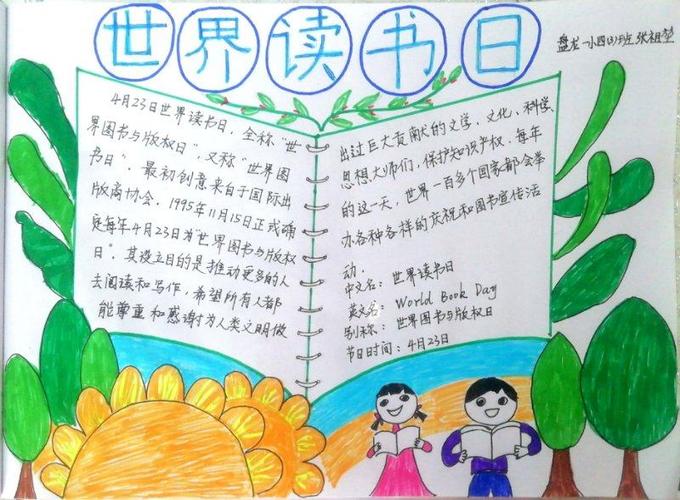 世界读书日
盘龙一小四(3)班 张祖堃
4月23日世界读书日，全称“世
界图书与版权日”，又称“世界图
书日”，最初创意来自于国际出
版商协会．1995年11月15日正式确
定每年4月23日为“世界图书与版权
日”．其设立目的是推动更多的人
去阅读和写作，希望所有人都
能尊重和感谢为人类文明做
出过巨大贡献的文学、文化、科学、
思想大师们，保护知识产权．每年
的这一天，世界一百多个国家都会举
办各种各样的庆祝和图书宣传活
动．
中文名：世界读书日
英文名：World Book Day
别称：世界图书与版权日
节日时间：4月23日